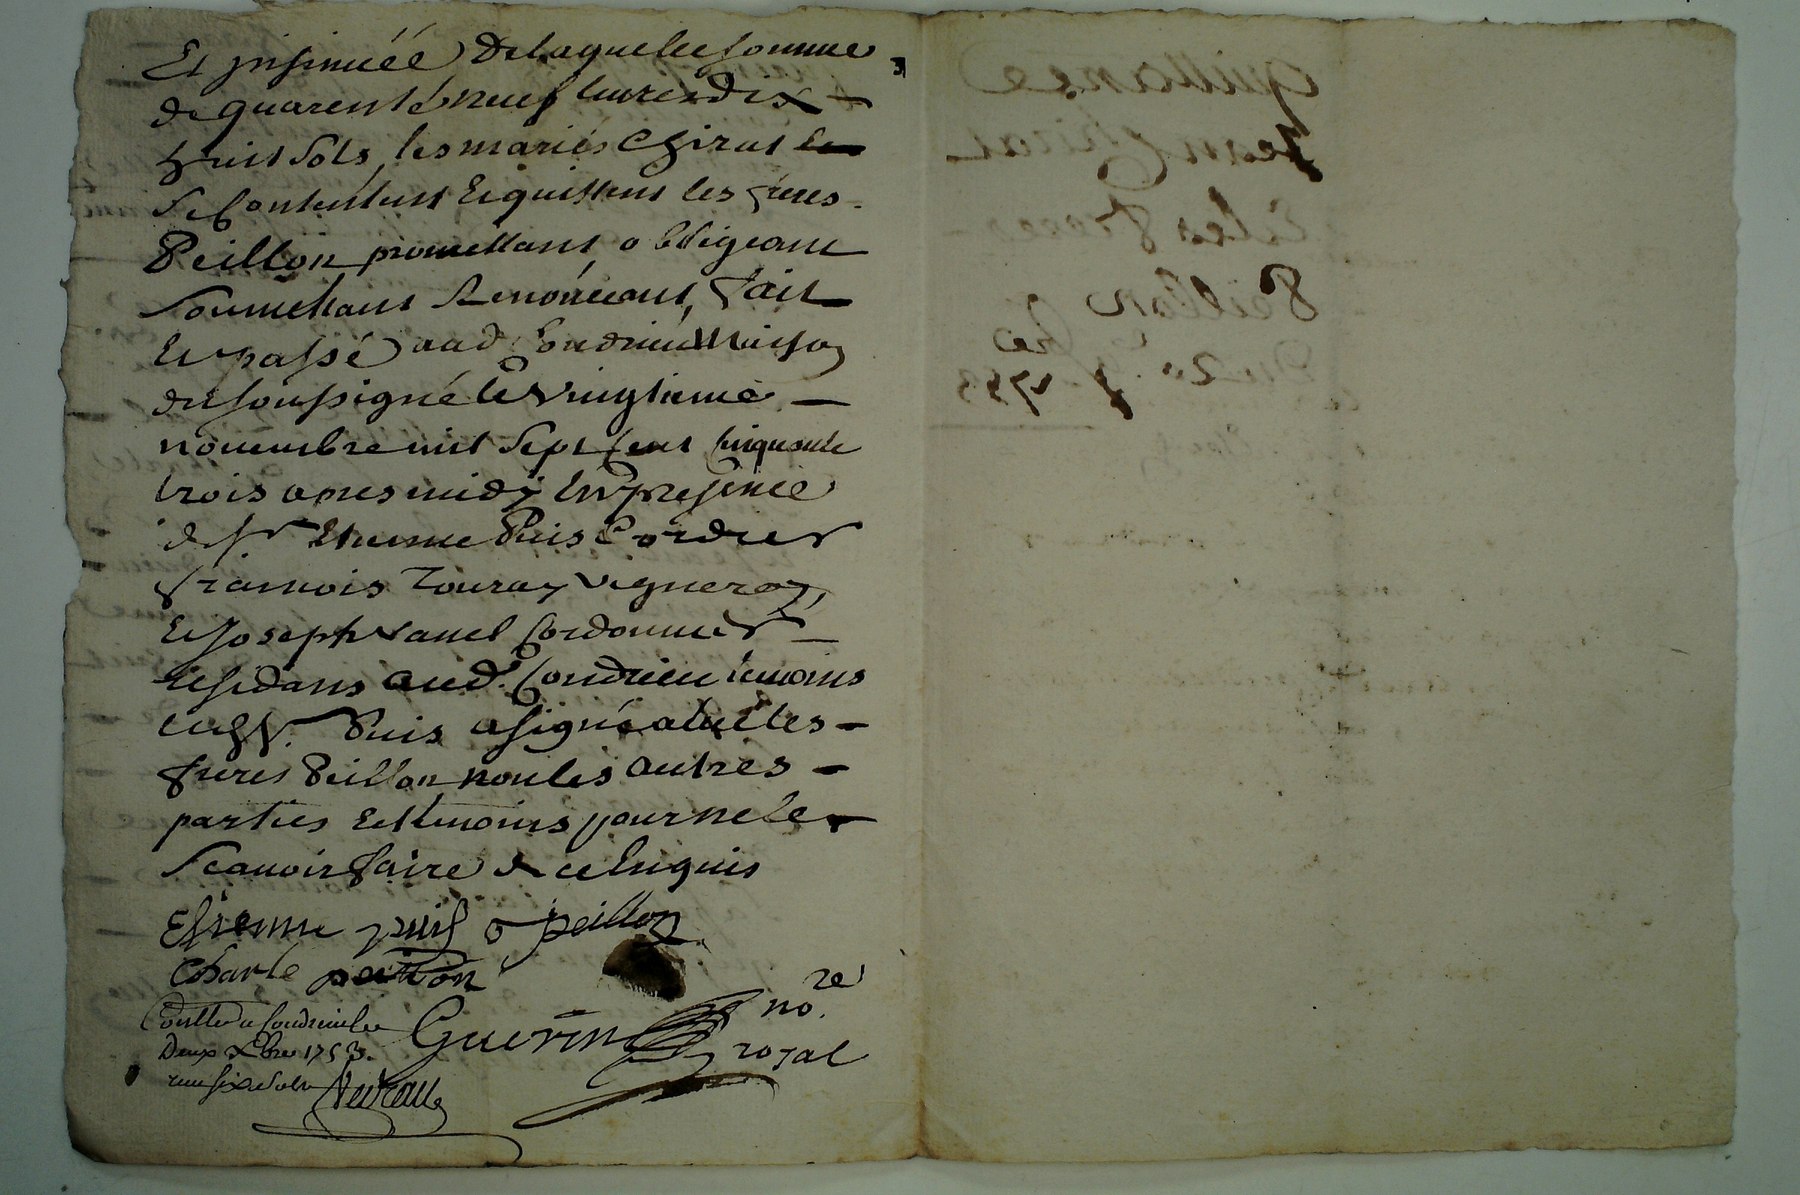 Et insinuéé De laquelle somme
de quarente neuf livres dix
huit sols, les mariés Chirat
se Contentent Et quittent les freres
Peillon promettant obligeant
soumettant Renonceant, fait
Et passé aud. Condrieu Maison
du soussigné le vingtieme
novembre mil sept Cent Cinquante
trois apres midy En presence
de sr Etienne Puis Cordier
francois Touray vigneron,
Et Joseph vanel Cordonnier
residans aud. Condrieu temoins
led. sr. Puis a signé avec les
freres Peillon non les autres
parties Et temoins pour ne le
scavoir faire de ce Enquis
Etienne puis peillon
Charle peillon
Conllé a Condrieu le
Deux Xbre 1753.
reçu six sols
Guerin no.re
royal
Quittance
Jean Chirat
Et les freres
Peillon
Du 20 9bre
1753